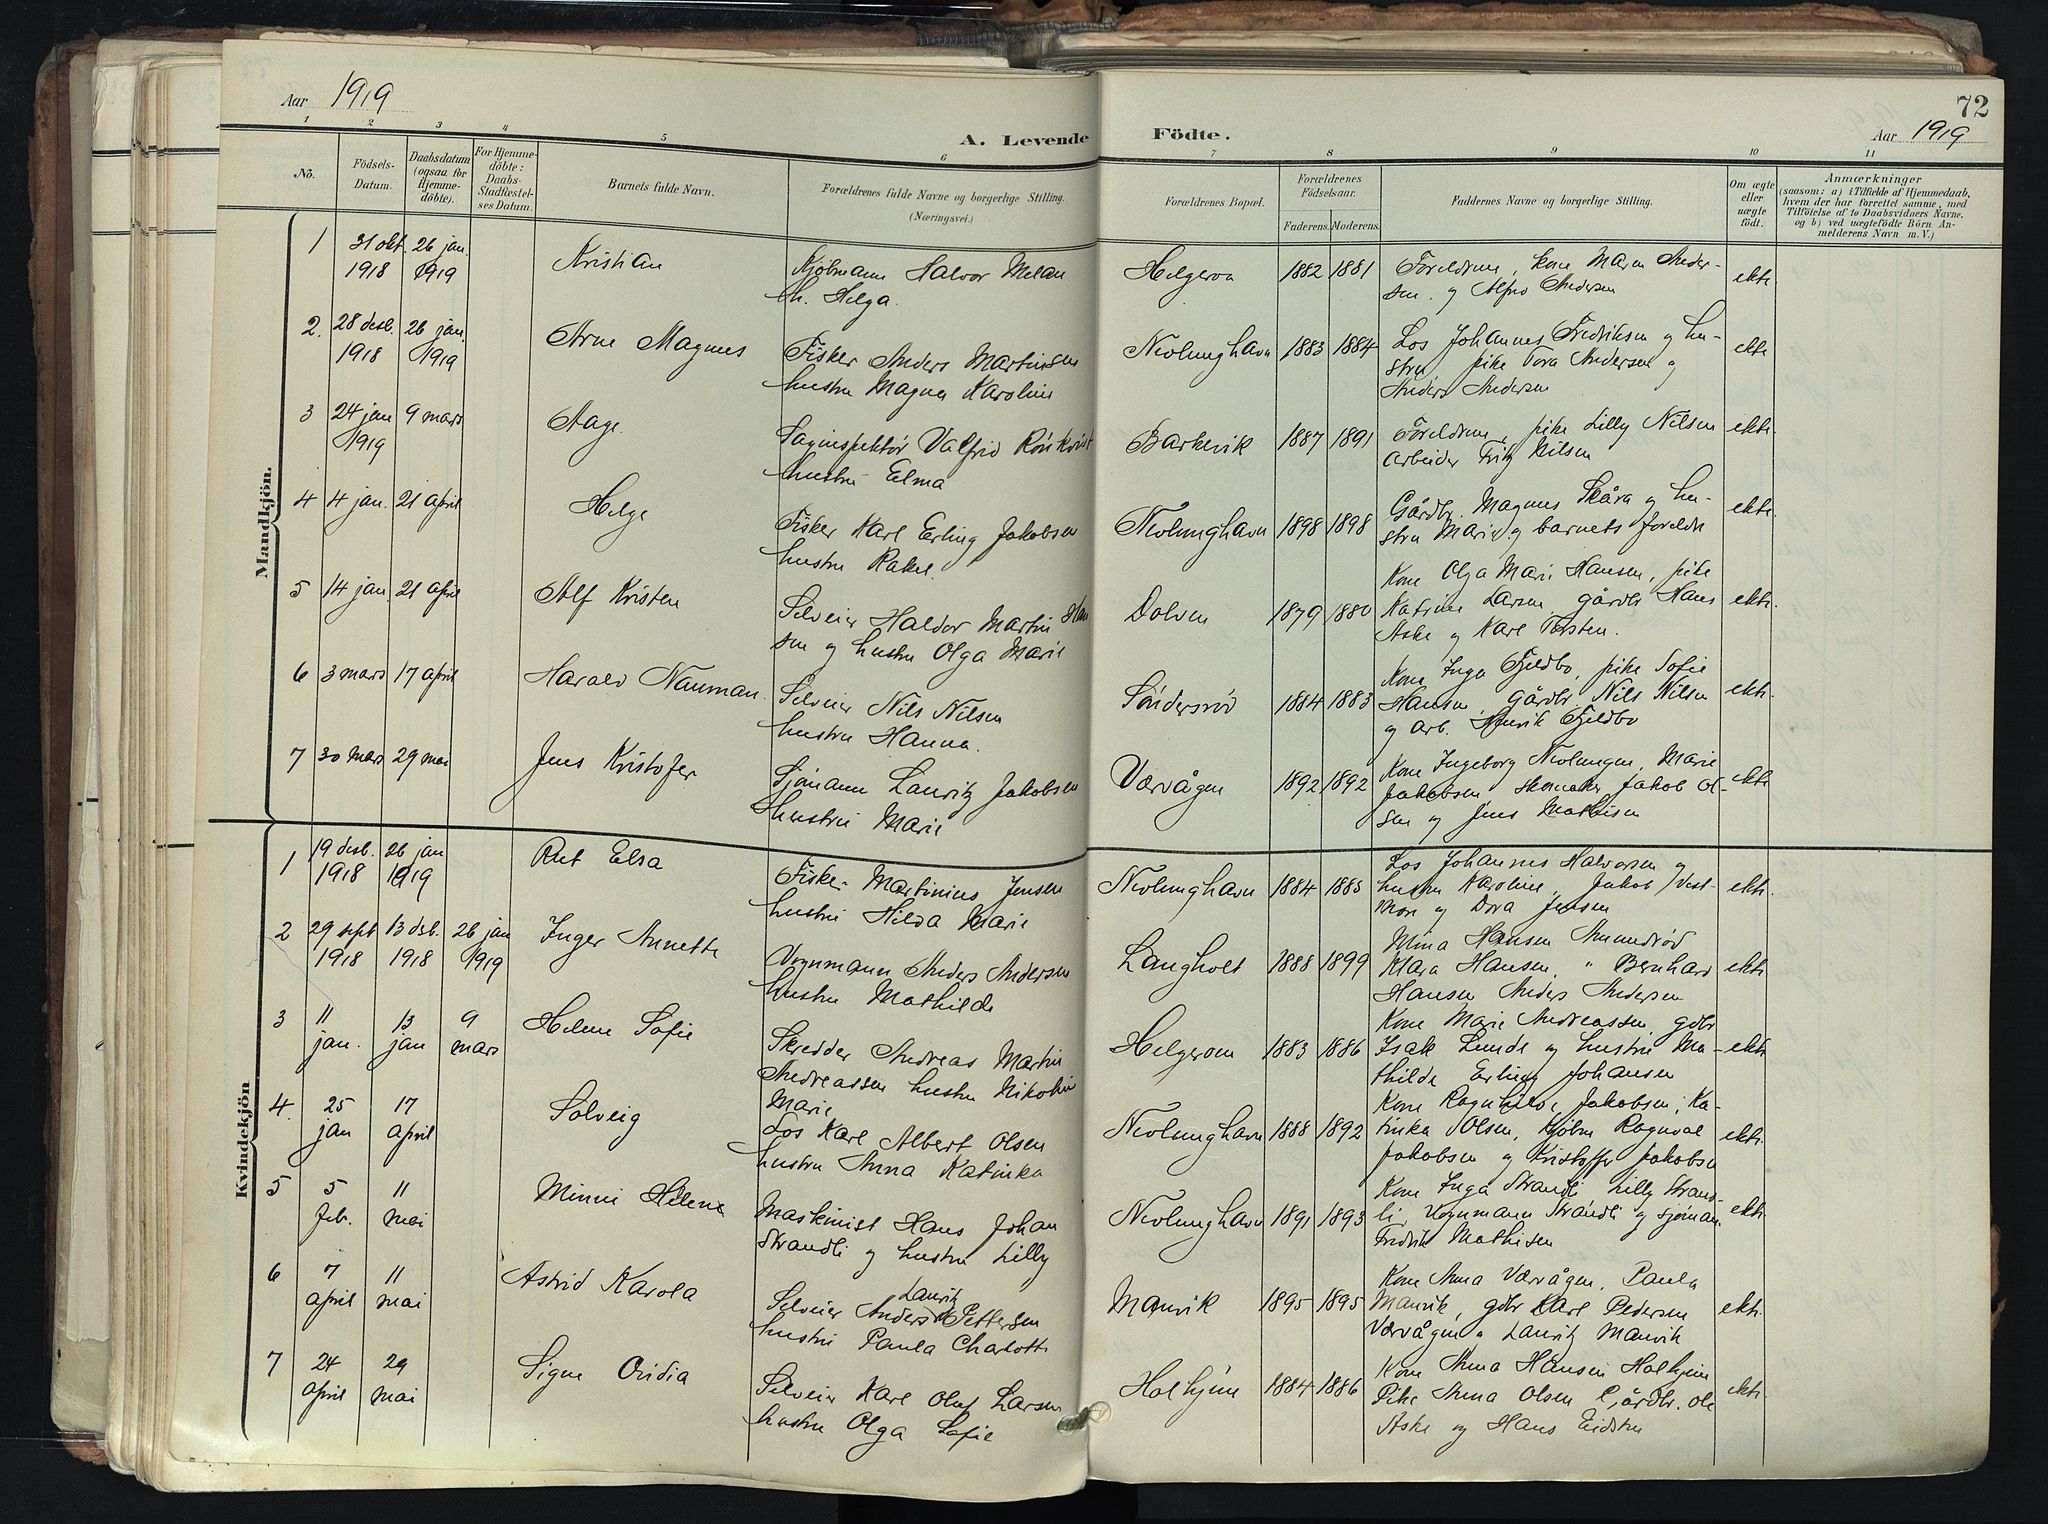 Aar 1919
A. Levende Födte.
72
Aar 1919
1 2 3 4 5 6 7 8 9 10 11
No.
Födsels-Datum.
Daabsdatum (ogsaa for Hjemme-döbte).
For Hjemme-döbte: Daabs-Stadfæstel-ses Datum.
Barnets fulde Navn.
Forældrenes fulde Navne og borgerlige Stilling. (Næringsvei.)
Forældrenes Bopæl.
Forældrenes Födselsaar.
Faderens. Moderens.
Faddernes Navne og borgerlige Stilling.
Om ægte eller uægte födt.
Anmærkninger
(saasom: a) i Tilfælde af Hjemmedaab,
hvem der har forrettet samme, med
Tilföielse af to Daabsvidners Navne.
og b) ved uægtefödte Börn An-
melderens Navn m. V.)
Mandkjön.
1 31 okt. 1918 26 jan. 1919 Kristian
Kjöbmann Halvor Melau
h. Helga.
Helgeroa 1882 1881
Foreldrene, kone Maren Ander-
sen. og Alfred Andersen
ekte
2. 28 desb. 1918 26 jan. 1919 Arne Magnus
Fisker Anders Martinsen
hustru Magna Karoline
Nevlunghavn 1883 1884
Los Johannes Fredriksen og hu-
stru pike Tora Andersen og
Anders Andersen
ekte
3 24 jan 1919 9 mars Aage.
Saginspektör Valfrid
hustru Elma
Barkevik 1887 1891
Foreldrene, pike Lilly Nilsen
Arbeider Fritz Nilsen
ekte.
4 4 jan. 21 april Helge
Fisker Karl Erling Jakobsen
hustru Rakel.
Nevlunghavn 1898 1898
Gårdbr. Magnus Skåra og hu-
stru Marie og barnets foreldre
ekte.
5 14 jan. 21 april Alf Kristen
Selveier Haldor Martin Han
sen og hustru Olga Marie
Dolven 1879 1880
Kone Olga Marie Hansen, pike
Katrine Larsen, gårdbr Hans
Aske og Karl Torsten.
ekte.
6 3 mars 17 april Harald Nauman.
Selveier Nils Nilsen
hustru Hanna.
Söndersröd 1884 1883
Kone Inga Fjeldbo, pike Sofie
Hansen, gårdbr Nils Nilsen
og arb. Henrik Fjeldbo
ekte.
7 30 mars 29 mai Jens Kristofer
Sjömann Lauritz Jakobsen
Hustru Marie
Værvågen 1892 1892
Kone Ingeborg Nevlungen, Marie
Jakobsen skomaker Jakob Ol-
sen og Jens Mathisen
ekte
Kvindekjön
1 19 desb. 1918 26 jan 1919 Rut Elsa
Fisker Martinius Jensen
hustru Hilda Marie
Nevlunghavn 1884 1885
Los Johannes Halvorsen og
hustru Karoline, Jakob Vest-
More og Dora Jensen
ekte.
2 29 sept 1918 13 desb. 1918 26 jan 1919 Inger Annette
Vognmann Anders Andersen
hustru Mathilde
Langholt 1888 1899
Mina Hansen Amundröd
Klara Hansen, " Bernhard
Hansen Anders Andersen
ekte
3 11 jan. 13 jan 9 mars Helene Sofie
Skredder Andreas Martin
Andreassen hustru Nikoline
Marie
Helgeroa 1883 1886
Kone Marie Andreassen, gdbr
Isak Lunde og hustru Ma-
thilde Erling Johansen
ekte
4. 25 jan 17 april Solveig
Los Karl Albert Olsen
hustru Anna Katinka
Nevlunghavn 1888 1892
Kone Ragnhild Jakobsen, Ka-
tinka Olsen, Kjöbm Ragnval
Jakobsen og Kristoffer Jakobsen
ekte.
5 5 feb. 11 mai Minni Helene
Maskinist Hans Johan
Strandli og hustru Lilly
Nevlunghavn 1891 1893
Kone Inga Strandli Lilly Strand-
li, Vognmann Strandli og sjöman
Fredrik Mathisen
ekte.
6 7 april 11 mai Astrid Karola
Selveier Anders Lauritz Pettersen
hustru Paula Charlotte
Manvik 1895 1895
Kone Anna Værvågen, Paula
Manvik, gdbr Karl Pedersen
Værvågen og Lauritz Manvik
ekte.
7 24 april 29 mai Signe Ovidia
Selveier Karl Oluf Larsen
hustru Olga Sofie
Holhjem 1884 1886
Kone Anna Hansen Holhjem
Pike Anna Olsen Gårdbr. Ole
Aske og Hans Eidsten
ekte.